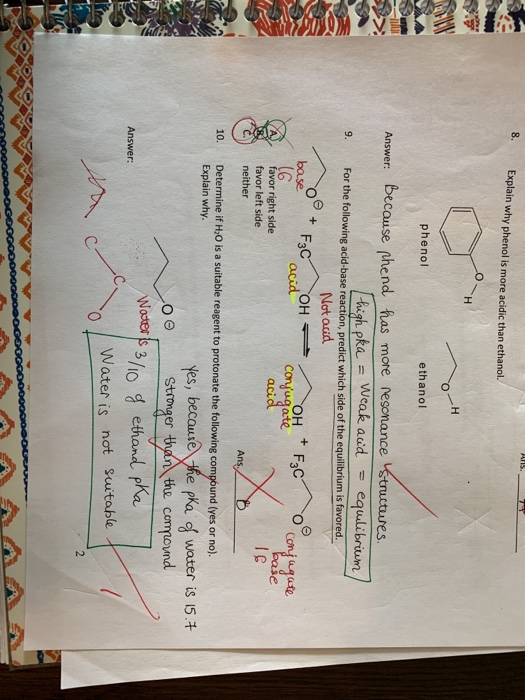 Ans.
8. Explain why phenol is more acidic than ethanol.
O
H
O
H
phenol
ethanol
Answer: Because phenol has more resonance structures.
high pka = Weak acid = equilibrium
9. For the following acid-base reaction, predict which side of the equilibrium is favored.
Not acid
O⊖ + F3C OH ⇌ OH + F3C O⊖
base
16
acid
conjugate
acid
conjugate
base
16
A. favor right side
B. favor left side
C. neither
Ans. B
10. Determine if H2O is a suitable reagent to protonate the following compound (yes or no).
Explain why.
O⊖
yes, because the pKa of water is 15.7
stronger than the compound
Answer:
Water is 3/10 of ethanol pKa
Water is not suitable
C
C
O
2